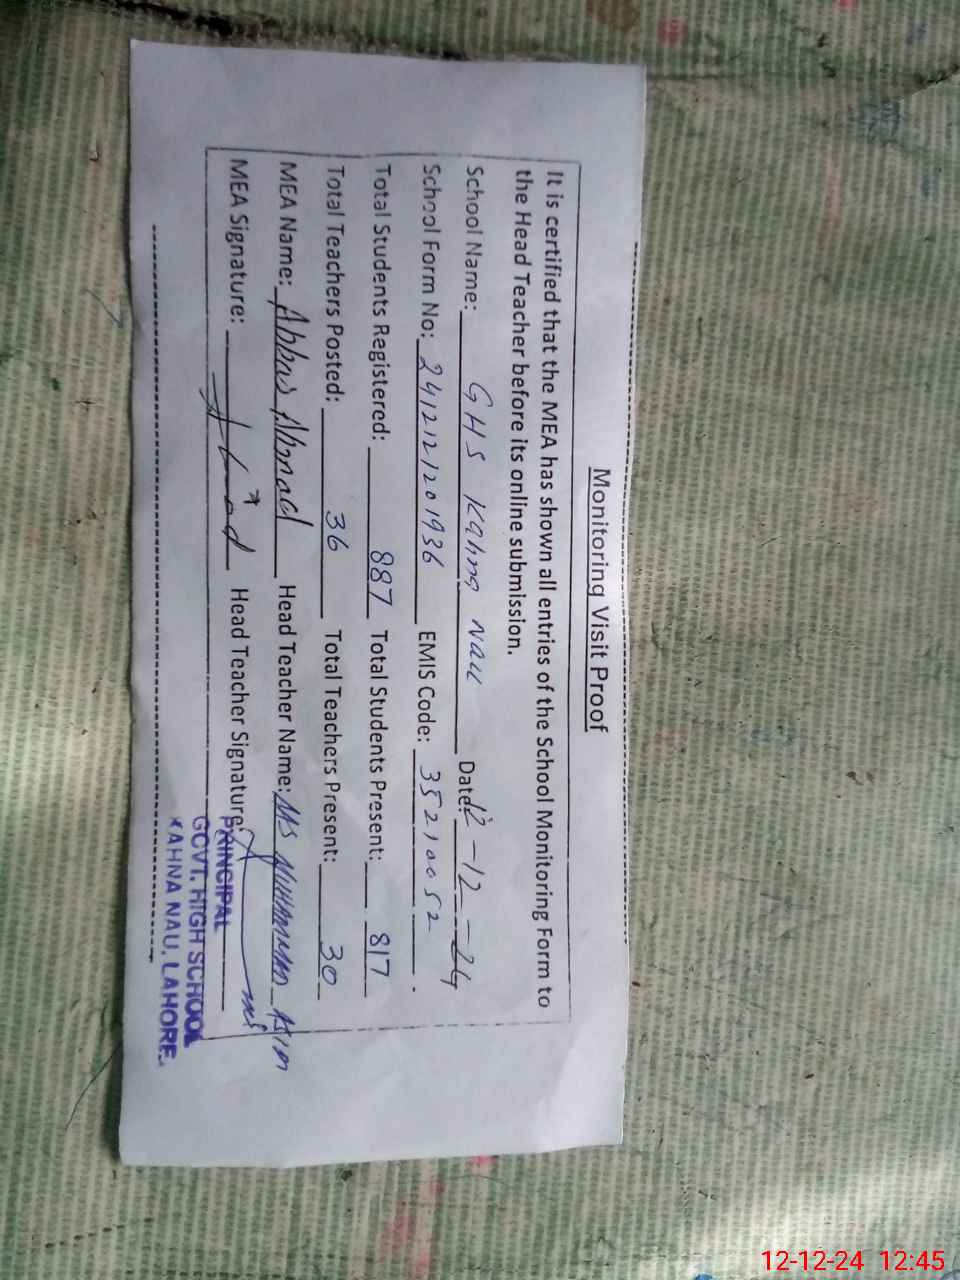 Monitoring Visit Proof
It is certified that the MEA has shown all entries of the School Monitoring Form to
the Head Teacher before its online submission.
School Name: GHS Kahna Nau Date: 12-12-24
School Form No: 24121201936 EMIS Code: 35210052
Total Students Registered: 887 Total Students Present: 817
Total Teachers Posted: 36 Total Teachers Present: 30
MEA Name: Abbas Ahmad Head Teacher Name: MS
MEA Signature: Head Teacher Signature:
PRINCIPAL
GOVT. HIGH SCHOOL
KAHNA NAU, LAHORE.
12-12-24 12:45